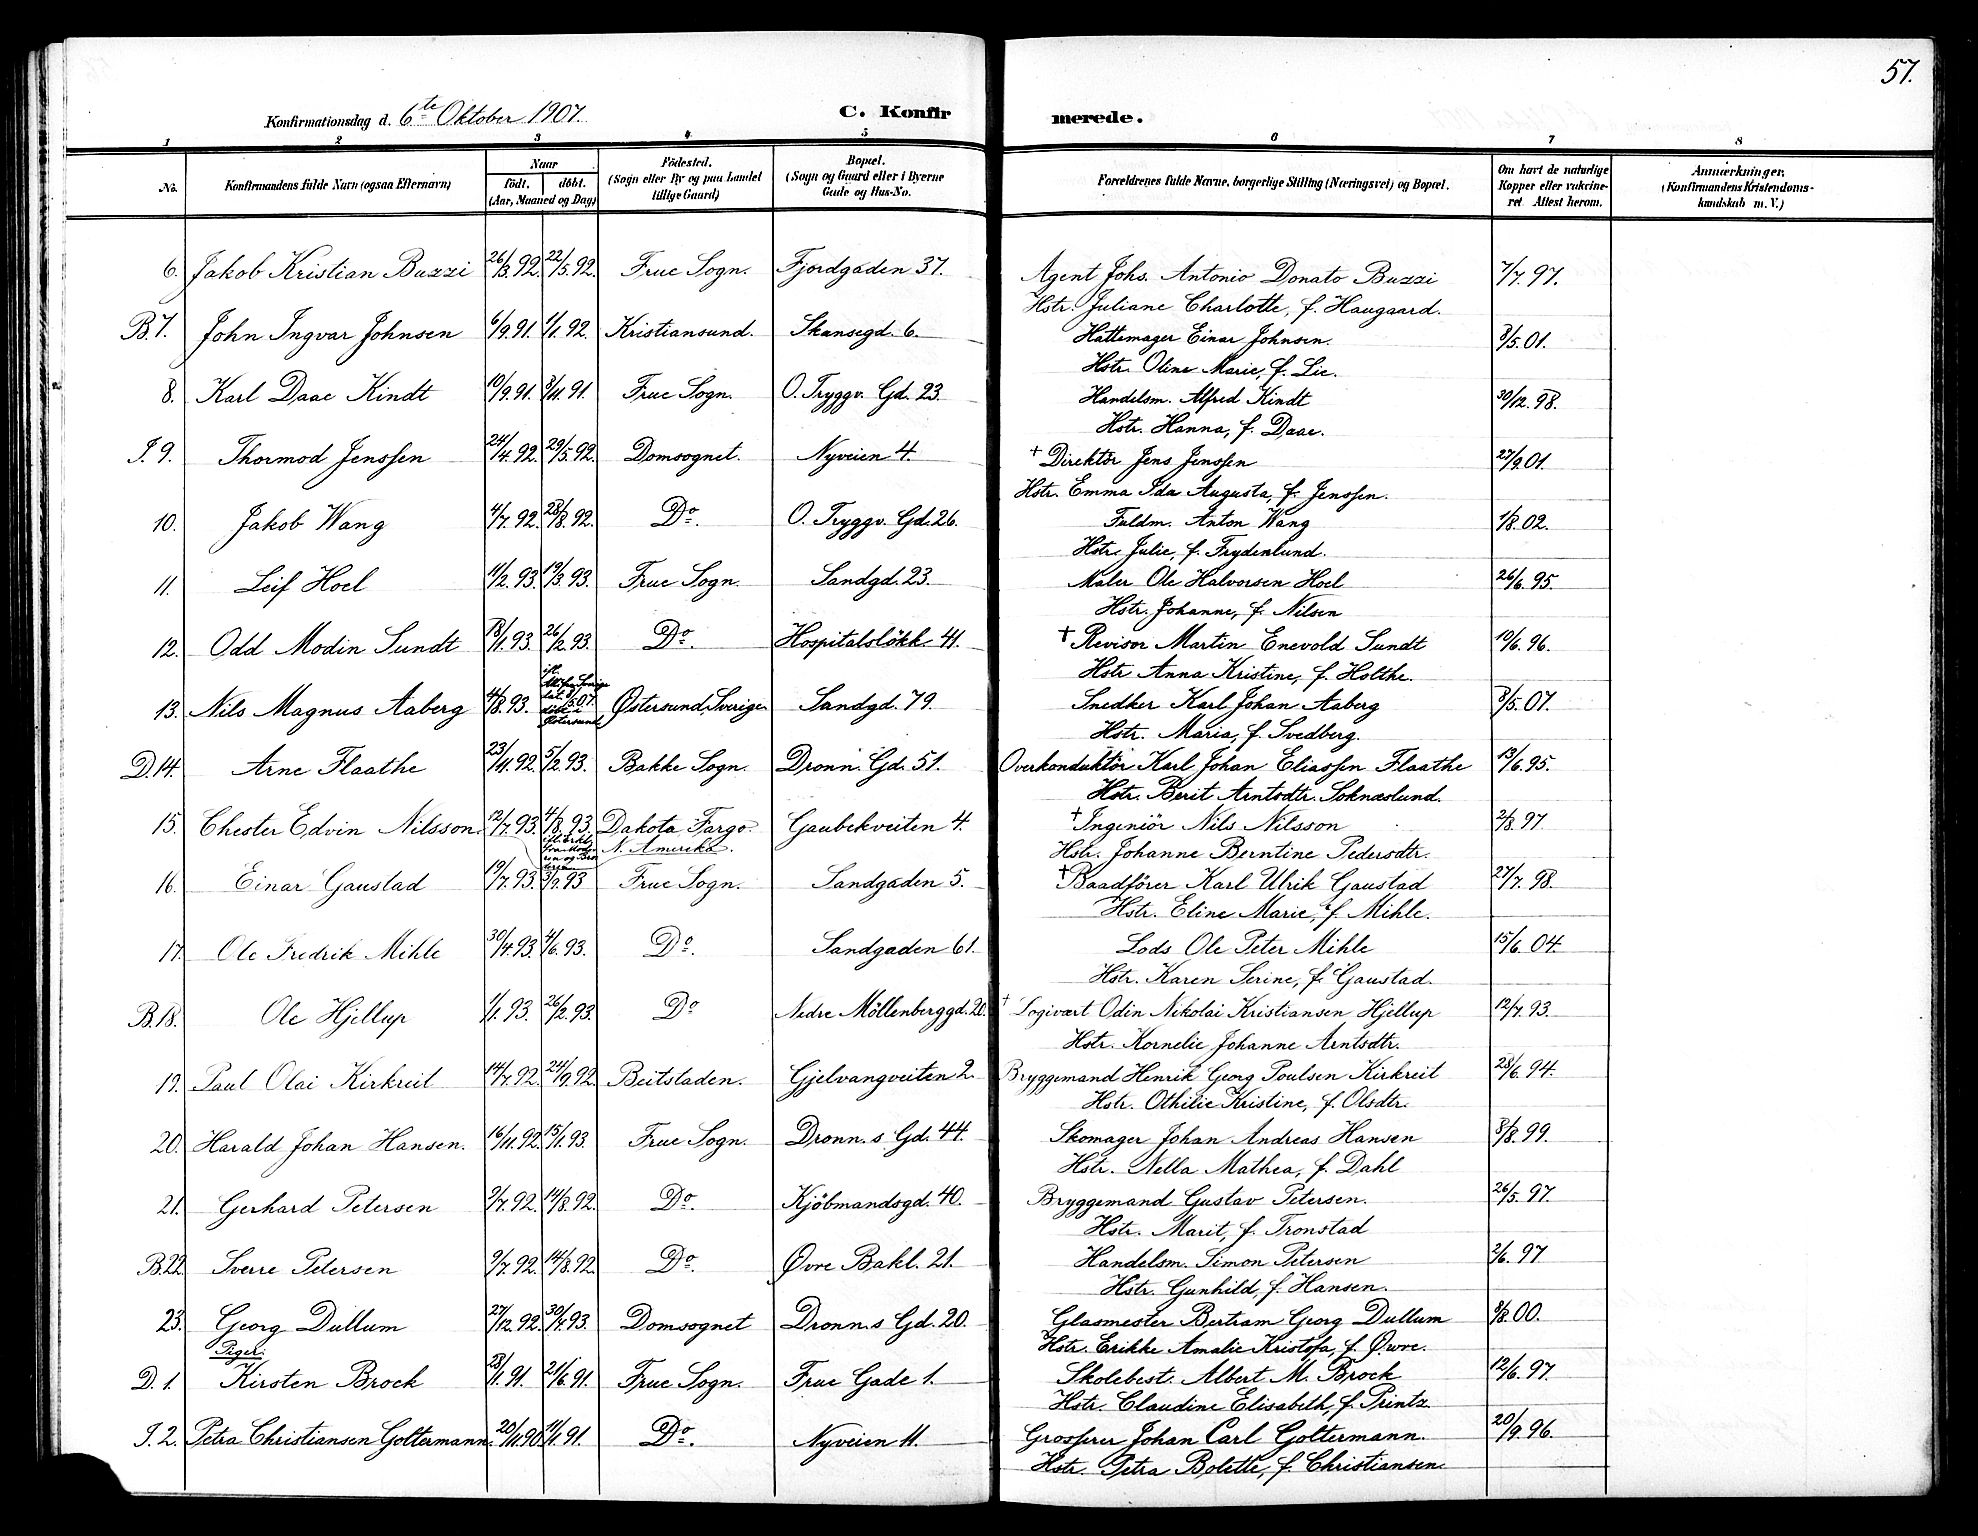 57.
Konfirmationsdag d. 6te Oktober 1907. C. Konfirmerede.
1 2 3 4 5 6 7 8
No. Konfirmandens fulde Navn (ogsaa Efternavn) Naar födt. döbt. (Aar, Maaned og Dag) Födested. (Sogn eller By og paa Landet tillige Gaard) Bopæl. (Sogn og Gaard eller i Byerne Gade og Hus-No. Forældrenes fulde Navne, borgerlige Stilling (Næringsvei) og Bopæl. Om havt de naturlige Kopper eller vakcineret. Attest herom. Anmærkninger. (Konfirmandens Kristendomskundskab m. V.)
6. Jakob Kristian Buzzi 26/3.92. 22/5.92. Frue Sogn. Fjordgaden 37. Agent Johs. Antonio Donato Buzzi 7/7.97.
Hstr. Juliane Charlotte, f. Haugaard.
B.7. John Ingvar Johnsen 6/9.91. 1/1.92. Kristiansund. Skansegd. 6. Hattemager Einar Johnsen. 3/5.01.
Hstr. Oline Marie, f. Lie.
8. Karl Daae Kindt 10/9.91. 3/11.91. Frue Sogn. O. Tryggv. Gd. 23. Handelsm. Alfred Kindt 30/12.98.
Hstr. Hanna, f. Daae.
I. 9. Thormod Jenssen 24/4.92. 29/5.92. Domsognet. Nyveien 4. † Direktör Jens Jenssen 27/9.01.
Hstr. Emma Ida Augusta, f. Jenssen.
10. Jakob Wang 4/7.92. 28/8.92. Do. O. Tryggv. Gd. 26. Fuldm. Anton Wang 1/8.02.
Hstr. Julie, f. Frydenlund.
11. Leif Hoel 11/2.93. 19/3.93. Frue Sogn. Sandgd. 23. Maler Ole Halvorsen Hoel 26/6.95.
Hstr. Johanne, f. Nilsen
12. Odd Modin Sundt 18/1.93. 26/2.93. Do. Hospitalslökk. 41. † Revisor Martin Enevold Sundt 10/6.96.
Hstr. Anna Kristine, f. Holthe.
13. Nils Magnus Aaberg 4/8.93. Östersund, Sverige Sandgd. 79. Snedker Karl Johan Aaberg 8/5.07.
Hstr. Maria, f. Svedberg.
D.14. Arne Flaathe 23/11.92. 5/2.93. Bakke Sogn. Dronn. Gd. 51. Overkonduktör Karl Johan Eliassen Flaathe 13/6.95.
Hstr. Berit Arntsdtr. Soknæslund.
15. Chester Edvin Nilsson. 12/7.93. 4/8.93. Dakota Fargo. N. Amerika. Gaubekveiten 4. † Ingeniör Nils Nilsson 2/8.97.
Hstr. Johanne Berntine Pedersdtr.
16. Einar Gaustad 19/7.93. 3/9.93 Frue Sogn. Sandgaden 5. † Baadförer Karl Ulrik Gaustad 27/7.98.
Hstr. Eline Marie, f. Mihle.
17. Ole Fredrik Mihle 30/4.93. 4/6.93. Do. Sandgaden 61. Lods Ole Peter Mihle 15/6.04.
Hstr. Karen Serine, f. Gaustad.
B.18. Ole Hjellup 1/1.93. 26/2.93. Do Nedre Möllenberggd. 20. † Logivært Odin Nikolai Kristiansen Hjellup 12/7.93.
Hstr. Kornelie Johanne Arntsdtr.
19. Paul Olai Kirkreit 14/7.92. 24/9.92. Beitstaden. Gjelvangveiten 2. Bryggemand Henrik Georg Poulsen Kirkreit 28/6.94.
Hstr. Othilie Kristine, f. Olsdtr.
20. Harald Johan Hansen. 16/11.92. 15/1.93. Frue Sogn. Dronn.s Gd. 44. Skomager Johan Andreas Hansen 8/8.99.
Hstr. Nella Mathea, f. Dahl
21. Gerhard Petersen 9/7.92. 14/8.92. Do. Kjöbmandsgd. 40. Bryggemand Gustav Petersen. 26/5.97.
Hstr. Marit, f. Tronstad
B.22. Sverre Petersen 9/7.92. 14/8.92. Do. Øvre Bakl. 21. Handelsm. Simon Petersen 2/6.97
Hstr. Gunhild, f. Hansen.
23. Georg Dullum 27/12.92. 30/4.93. Domsognet Dronn.s Gd. 20. Glasmester Bertram Georg Dullum 9/8.00.
Hstr. Erikke Amalie Kristofa, f. Øwre.
Piger.
D. 1. Kirsten Brock 28/1.91. 21/6.91. Frue Sogn. Frue Gade 1. Skolebest. Albert M. Brock 12/6.97.
Hstr. Claudine Elisabeth, f. Printz
I. 2. Petra Christiansen Goltermann. 20/11.90. 11/1.91. Do. Nyveien 11. Grosserer Johan Carl Goltermann. 20/9.96.
Hstr. Petra Bolette, f. Christiansen.